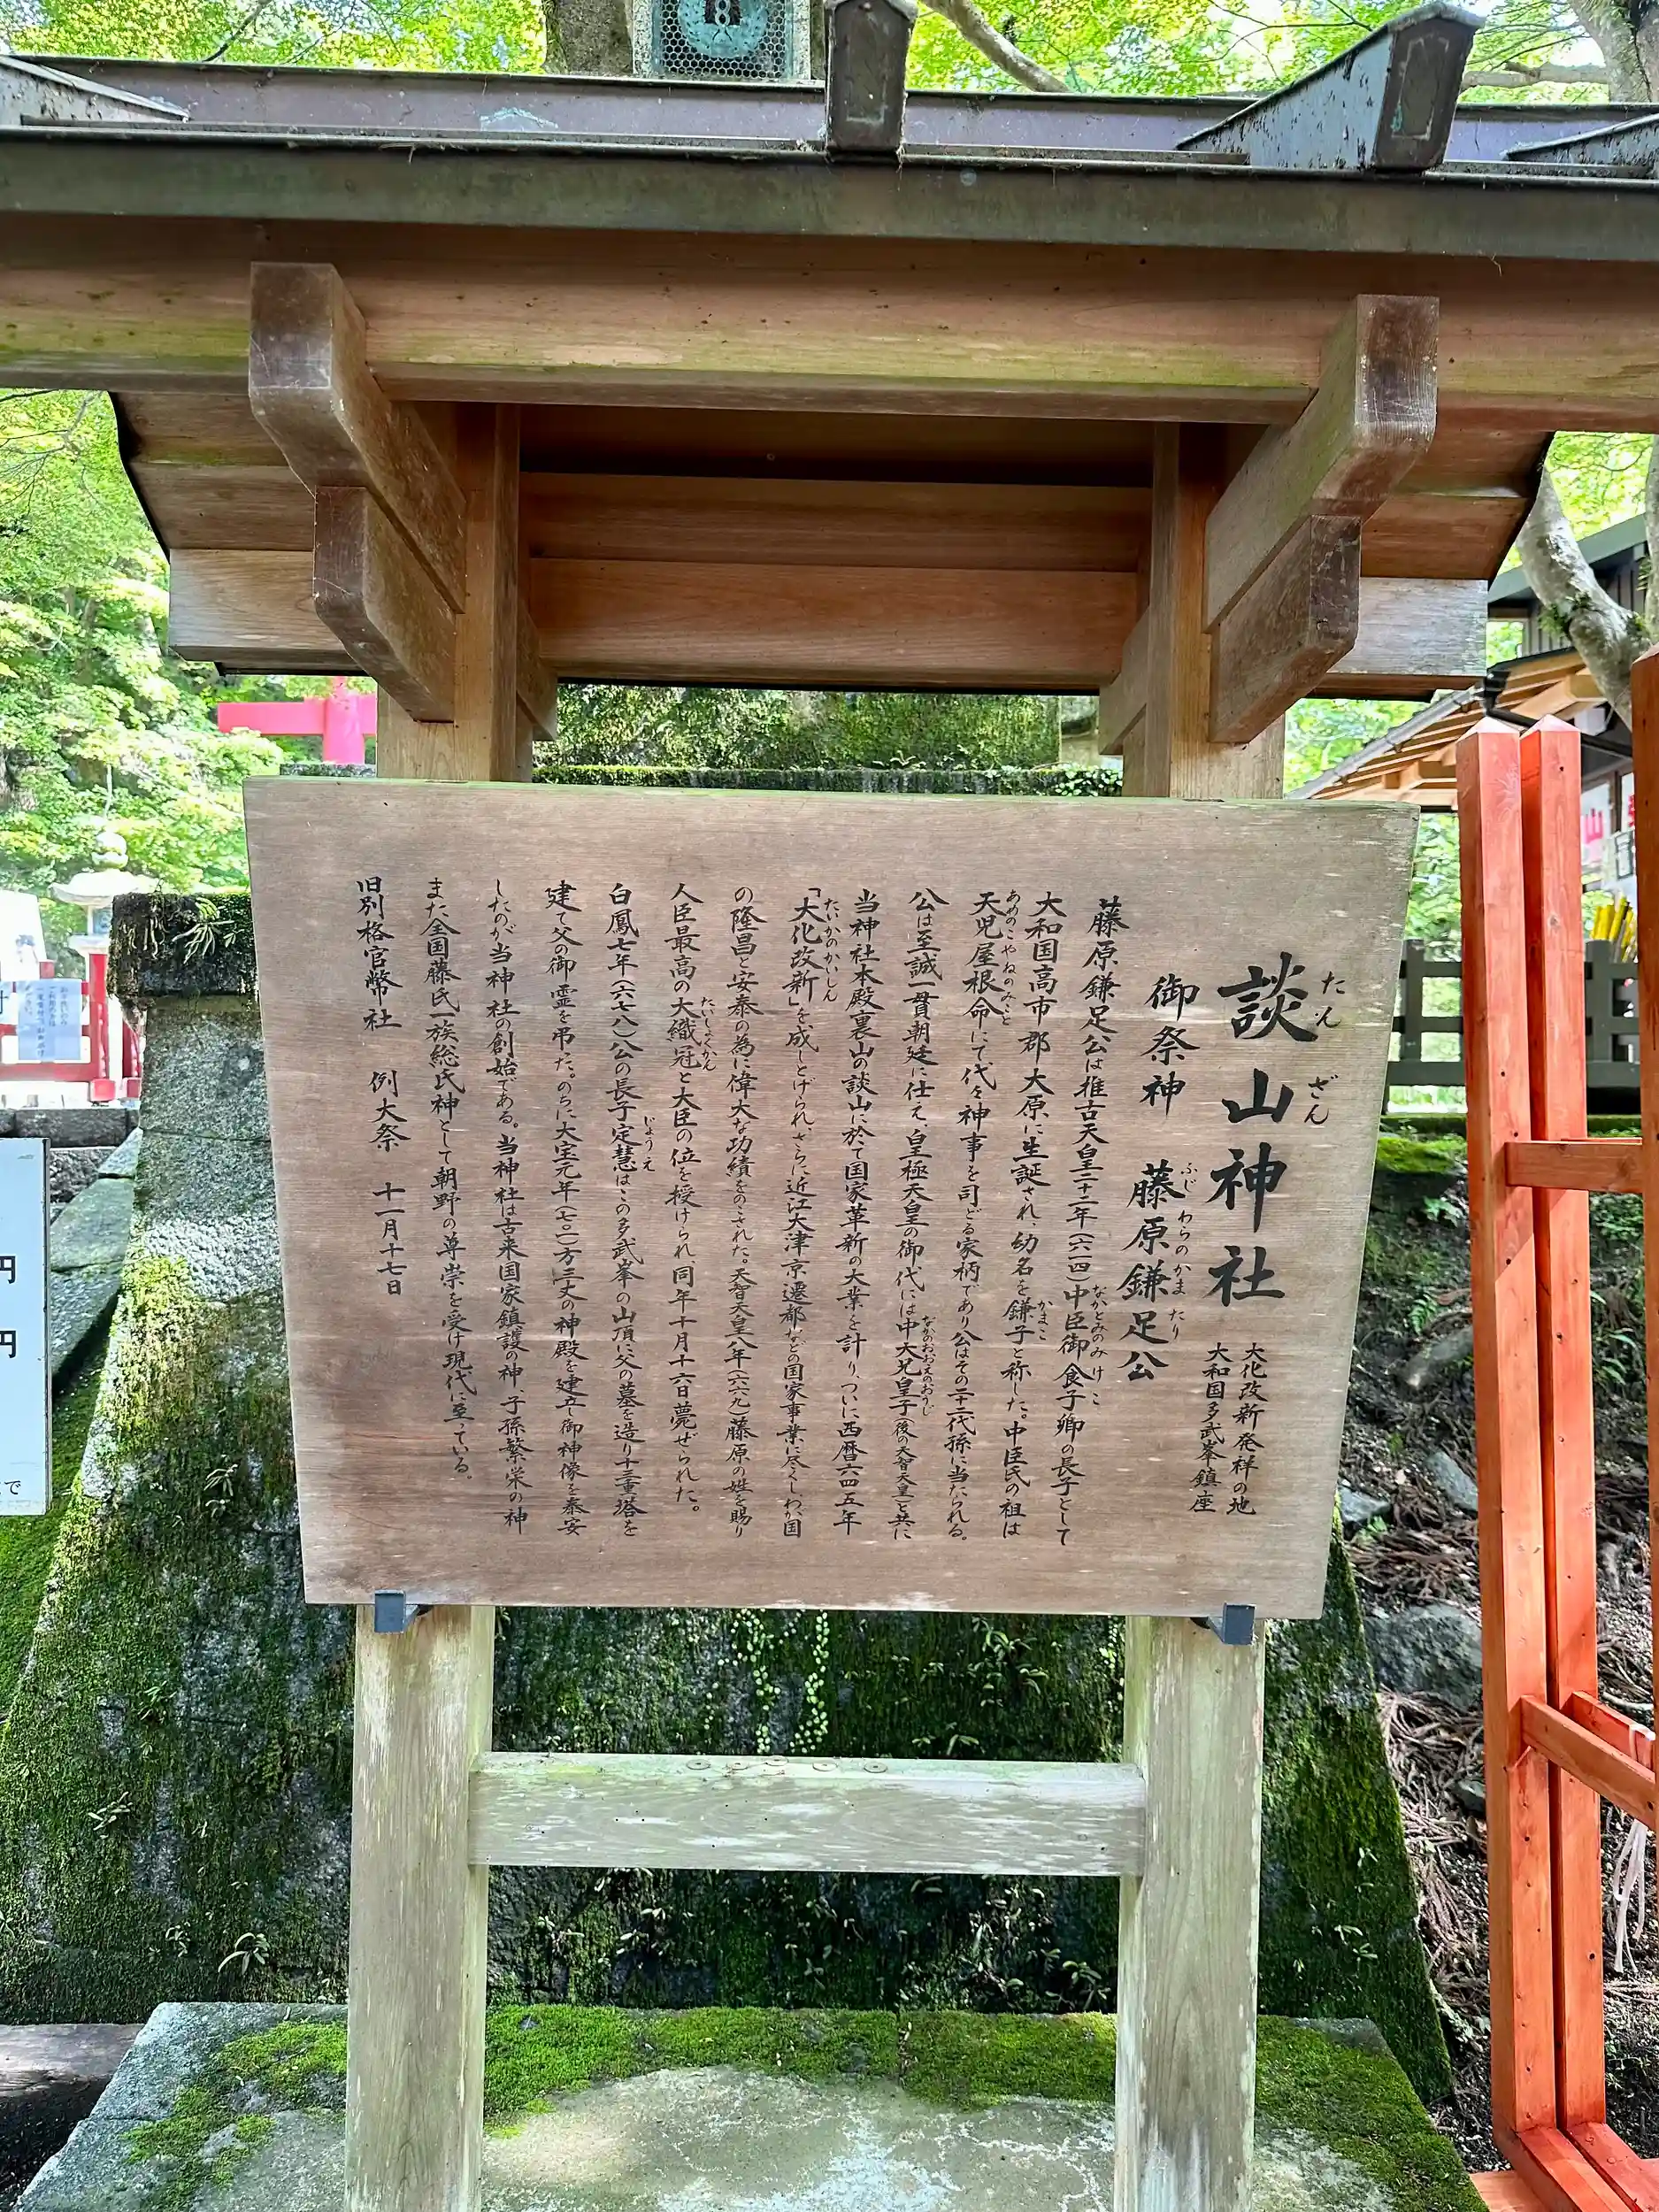 談山神社
たん ざん
大化改新発祥の地
大和国多武峯鎮座
御祭神 藤原鎌足公
ふじ わらのかま たり
藤原鎌足公は推古天皇二十二年(六一四)中臣御食子卿の長子として
なかとみのみ け こ
大和国高市郡大原に生誕され、幼名を鎌子と称した。中臣氏の祖は
かまこ
天児屋根命にて代々神事を司どる家柄であり公はその二十二代孫に当たられる。
あめのこやねのみこと
公は至誠一貫朝廷に仕え、皇極天皇の御代には中大兄皇子(後の天智天皇)と共に
なかのおおえのおうじ
当神社本殿裏山の談山に於て国家革新の大業を計り、ついに西暦六四五年
「大化改新」を成しとげられ、さらに近江大津京遷都などの国家事業に尽くし、わか国
たいかのかいしん
の隆昌と安泰の為に偉大な功績をのこされた。天智天皇八年(六六九)藤原の姓を賜り
人臣最高の大織冠と大臣の位を授けられ、同年十月十六日薨ぜられた。
たいしょくかん
白鳳七年(六七八)公の長子定慧はこの多武峯の山頂に父の墓を造り十三重塔を
じょうえ
建て父の御霊を弔た。のちに大宝元年(七〇一)方三丈の神殿を建立し御神像を奉安
したのが当神社の創始である。当神社は古来国家鎮護の神、子孫繁栄の神
また全国藤氏一族総氏神として朝野の尊崇を受け現代に至っている。
旧別格官幣社 例大祭 十一月十七日
8
円
円
で
山